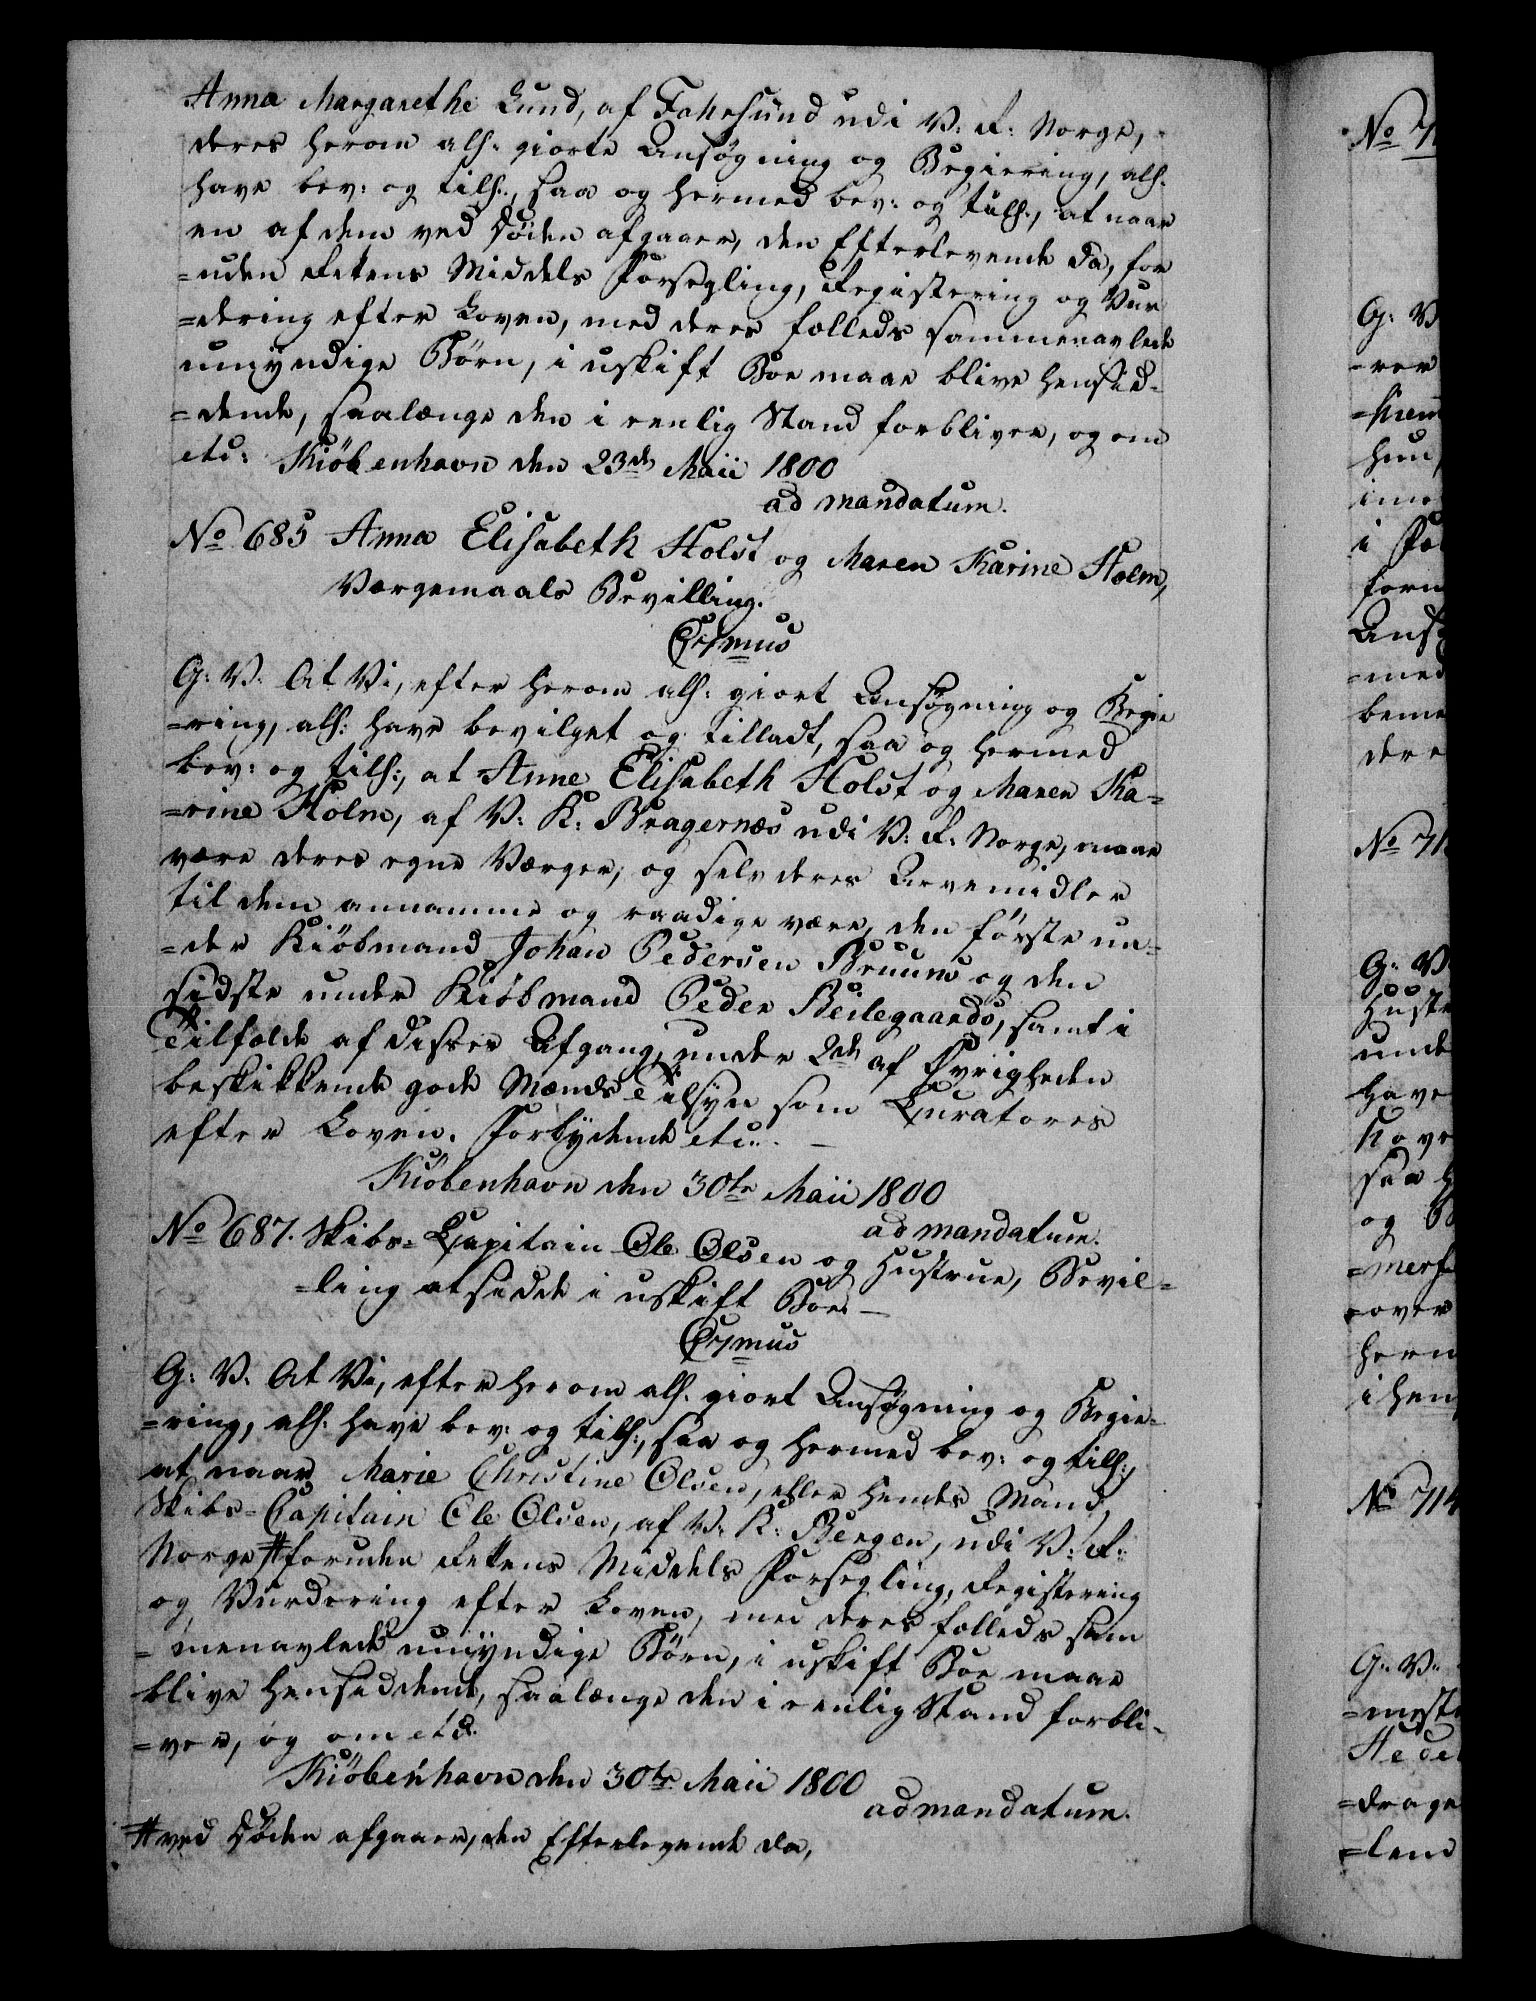 Anna Margarethe Lund, af Fahrsund udi V: R: Norge,
deres herom allh: giorte Ansøgning og Begiering, allh:
have bev: og till:, saa og hermed bev: og till:, at naar
en af dem ved Døden afgaaer, den Efterlevende da, for
=uden Rettens Middels Forsegling, Registering og Vur
=dering efter Loven, med deres fælleds sammenavlede
umyndige Børn, i uskift Boe maae blive hensid-
=dende, saalænge den i eenlig Stand forbliver, og om
etc: Kiöbenhavn den 23de Maii 1800
ad mandatum.
No 685 Anna Elisabeth Holst og Maren Karine Holm,
Værgemaals Bevilling.
C7mus
G: V: At Vi, efter herom allh: giort Ansøgning og Begie
=ring, allh: have bevilget og tilladt, saa og hermed
bev: og till:, at Anne Elisabeth Holst og Maren Ka=
=rine Holm, af V: K: Bragernæs udi V: R: Norge, maae
være deres egne Værger, og selv deres Arvemidler
til dem annamme og raadige være, den første un=
=der Kiöbmand Johan Pedersen Bruuns og den
sidste under Kiöbmand Peder Beilegaards, samt i
Tilfælde af disses Afgang, under 2de af Øvrigheden
beskikkende gode Mænds Tilsyn som Curatores
efter Loven. Forbydende etc: –
Kiöbenhavn den 30te Maii 1800
ad mandatum.
No 687. Skibs= Capitain Ole Olsen og Hustrue, Bevil=
=ling at sidde i uskift Boe. –
C7mus
G: V: At Vi, efter herom allh: giort Ansøgning og Begie=
=ring, allh: have bev: og till:, saa og hermed bev: og till:,
at naar Marie Christine Olsen, eller hendes Mand
Skibs=Capitain Ole Olsen, af V: K: Bergen, udi V: R:
Norge # foruden Rettens Middels Forsegling, Registering
og Vurdering efter Loven, med deres fælleds sam
=menavlede umyndige Børn, i uskift Boe maae
blive hensiddende, saalænge den i eenlig Stand forbli=
=ver, og om etc:
Kiöbenhavn den 30te Maii 1800
ad mandatum.
# ved Døden afgaaer, den Efterlevende da,
No 71
G: V
=rer
hun
i
Ansø
=med
dere
No 71
G: V
Hustr
unde
have
saa
og B
=over
herm
i hen
No 714
G: V:
=meste
Hede
=drage
=lend